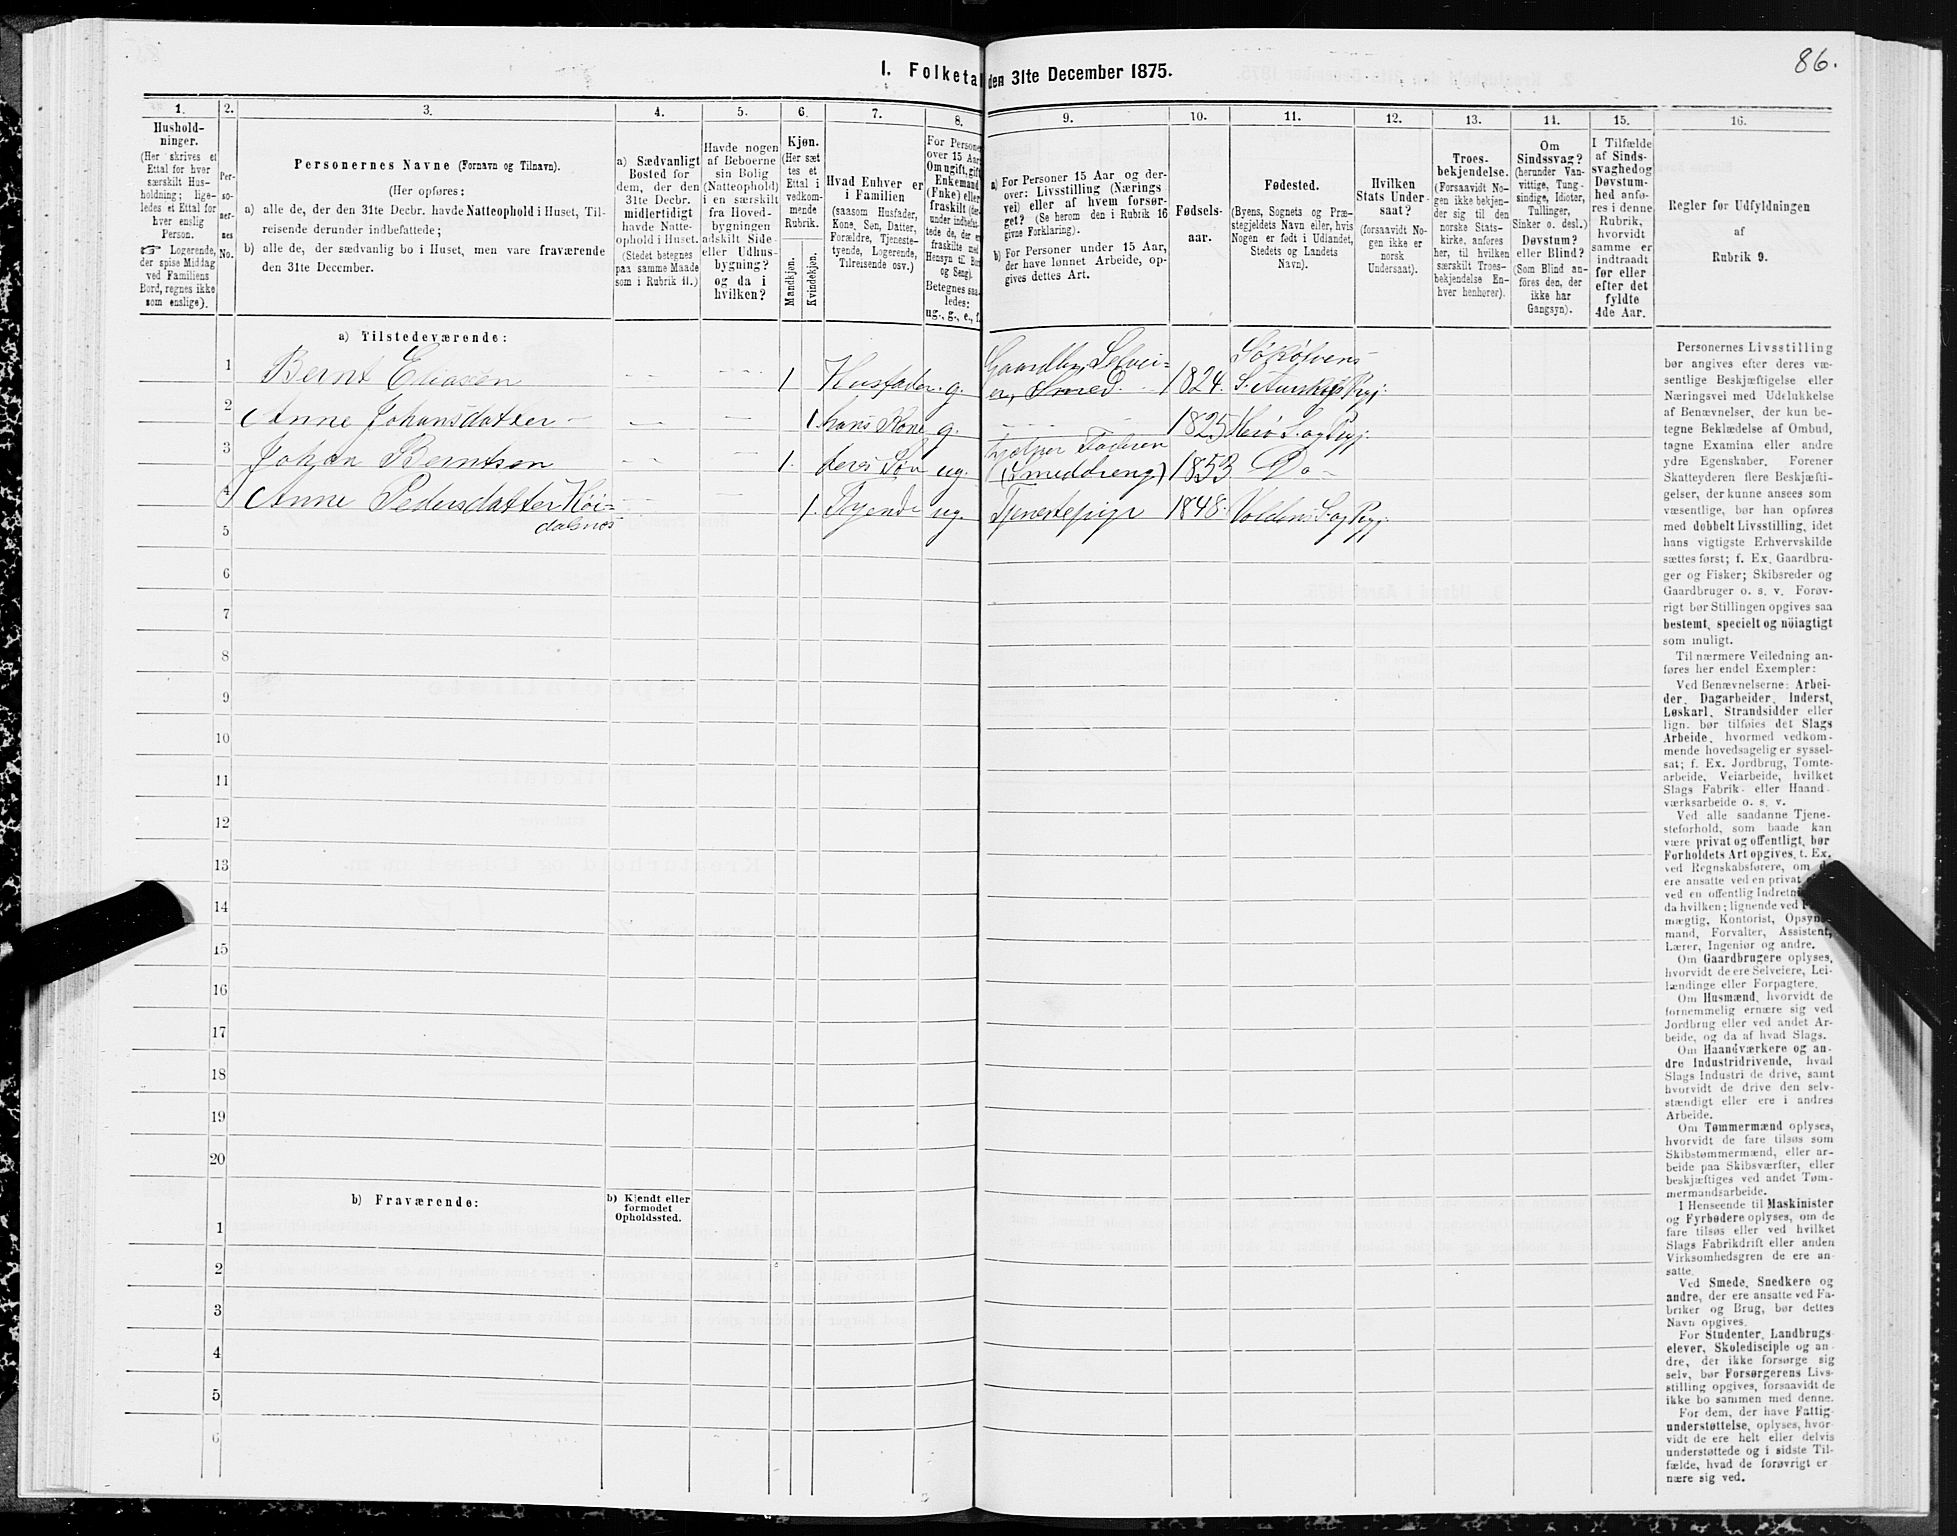 86.
I. Folketal den 31te December 1875.
1. 2. 3. 4. 5. 6. 7. 8. 9. 10. 11. 12. 13. 14. 15. 16.
Hushold-
ninger.
(Her skrives et
Ettal for hver
særskilt Hus-
holdning; lige-
ledes et Ettal for
hver enslig
Person.
☞ Logerende,
der spise Middag
ved Familiens
Bord, regnes ikke
som enslige).
Per-
so-
ner-
nes
No.
Personernes Navne (Fornavn og Tilnavn).
(Her opføres:
a) alle de, der den 31te Decbr. havde Natteophold i Huset, Til-
reisende derunder indbefattede;
b) alle de, der sædvanlig bo i Huset, men vare fraværende
den 31te December.
a) Sædvanligt
Bosted for
dem, der den
31te Decbr.
midlertidigt
havde Natte-
ophold i Huset.
(Stedet betegnes
paa samme Maade
som i Rubrik 11.)
Havde nogen
af Beboerne
sin Bolig
(Natteophold)
i en særskilt
fra Hoved-
bygningen
adskilt Side-
eller Udhus-
bygning?
og da i
hvilken?
Kjøn.
(Her sæt
tes et
Ettal i
vedkom-
mende
Rubrik.
Mandkjøn.
Kvindekjøn.
Hvad Enhver er
i Familien
(saasom Husfader,
Kone, Søn, Datter,
Forældre, Tjeneste-
tyende, Logerende,
Tilreisende osv.)
For Persone
over 15 Aar
Om ugift, gift
Enkemand
(Enke) eller
fraskilt (der-
under indbefat-
tede de, der er
fraskilte med
Hensyn til Bo
og Seng).
Betegnes saa-
ledes:
ug., g., e., f.
a) For Personer 15 Aar og der-
over: Livsstilling (Nærings
vei) eller af hvem forsør-
get? (Se herom den i Rubrik 16
givne Forklaring).
b) For Personer under 15 Aar,
der have lønnet Arbeide, op-
gives dettes Art.
Fødsels-
aar.
Fødested.
(Byens, Sognets og Præ-
stegjeldets Navn eller, hvis
Nogen er født i Udlandet,
Stedets og Landets
Navn).
Hvilken
Stats Under-
saat?
(forsaavidt No-
gen ikke er
norsk
Undersaat).
Troes-
bekjendelse.
(Forsaavidt No-
gen ikke bekjen-
der sig til den
norske Stats-
kirke, anføres
her, til hvilken
særskilt Troes-
bekjendelse En-
hver henhører).
Om
Sindssvag?
(herunder Van-
vittige, Tung-
sindige, Idioter,
Tullinger,
Sinker o. desl.)
Døvstum?
eller Blind?
(Som Blind an-
føres den, der
ikke har
Gangsyn).
I Tilfælde
af Sinds-
svaghed og
Døvstum-
hed anfø-
res i denne
Rubrik,
hvorvidt
samme er
indtraadt
før eller
efter det
fyldte
4de Aar.
Regler for Udfyldningen
af
Rubrik 9.
a) Tilstedeværende:
1 Bernt Eliasen — — 1 Husfader g. Gaardbr, Selvei- er, Smed 1824.
2 Anne Johansdatter — — 1. hans Kone g. 1825 Herø S. og Pgj.
3 Johan Berntsen — — 1. deres Søn ug. hjelper Faderen (Smeddreng) 1853 Do —
4 Anne Pedersdatter Køi- — — 1. Tyende ug. Tjenestepige 1848. Voldens S. og Pgj.
dalsnes
5
6
7
8
9
10
11
12
13
14
15
16
17
18
19
20
b) Fraværende:
b) Kjendt eller
formodet
Opholdssted.
1
2
3
4
5
6
Personernes Livsstilling
bør angives efter deres væ-
sentlige Beskjæftigelse eller
Næringsvei med Udelukkelse
af Benævnelser, der kun be-
tegne Beklædelse af Ombud,
tagne Examina eller andre
ydre Egenskaber. Forener
Skatteyderen flere Beskjæfti-
gelser, der kunne ansees som
væsentlige, bør han opføres
med dobbelt Livsstilling, idet
hans vigtigste Erhvervskilde
sættes først; f. Ex. Gaardbru-
ger og Fisker; Skibsreder og
Gaardbruger o. s. v. Forøv-
rigt bør Stillingen opgives saa
bestemt, specielt og nöiagtigt
som muligt.
Til nærmere Veiledning an-
føres her endel Exempler:
Ved Benævnelserne: Arbei-
der, Dagarbeider, Inderst,
Løskarl, Strandsidder eller
lign. bør tilføies det Slags
Arbeide, hvormed vedkom-
mende hovedsagelig er syssel-
sat; f. Ex. Jordbrug, Tomte-
arbeide, Veiarbeide, hvilket
Slags Fabrik- eller Haand-
værksarbeide o. s. v.
Ved alle saadanne Tjene-
steforhold, som baade kan
være privat og offentligt, bør
Forholdets Art opgives, f. Ex.
ved Regnskabsførere, om
ere ansatte ved en privat
ved en offentlig Indretn
da hvilken; lignende ved
mægtig, Kontorist, Opsyns
mand, Forvalter, Assistent,
Lærer, Ingeniør og andre.
Om Gaardbrugere oplyses,
hvorvidt de ere Selveiere, Lei-
lændinge eller Forpagtere.
Om Husmænd, hvorvidt de
fornemmelig ernære sig ved
Jordbrug eller ved andet Ar-
beide, og da af hvad Slags.
Om Haandværkere og an-
dre Industridrivende, hvad
Slags Industri de drive, samt
hvorvidt de drive den selv-
stændigt eller ere i andres
Arbeide.
Om Tømmermænd oplyses,
hvorvidt de fare tilsøs som
Skibstømmermænd, eller ar-
beide paa Skibsværfter, eller
beskjæftiges ved andet Tøm-
mermandsarbeide.
I Henseende til Maskinister
og Fyrbødere oplyses, om de
fare tilsøs eller ved hvilket
Slags Fabrikdrift eller anden
Virksomhedsgren de ere an-
satte.
Ved Smede, Snedkere og
andre, der ere ansatte ved Fa-
briker og Brug, bør dettes
Navn opgives.
For Studenter, Landbrugs-
elever, Skoledisciple og an-
dre, der ikke forsørge sig
selv, bør Forsørgerens Livs-
stilling opgives, forsaavidt de
ikke bo sammen med denne.
For dem, der have Fattig-
understøttelse, oplyses, hvor-
vidt de ere helt eller delvis
understøttede og i sidste Til-
fælde, hvad de forøvrigt er
nære sig ved.